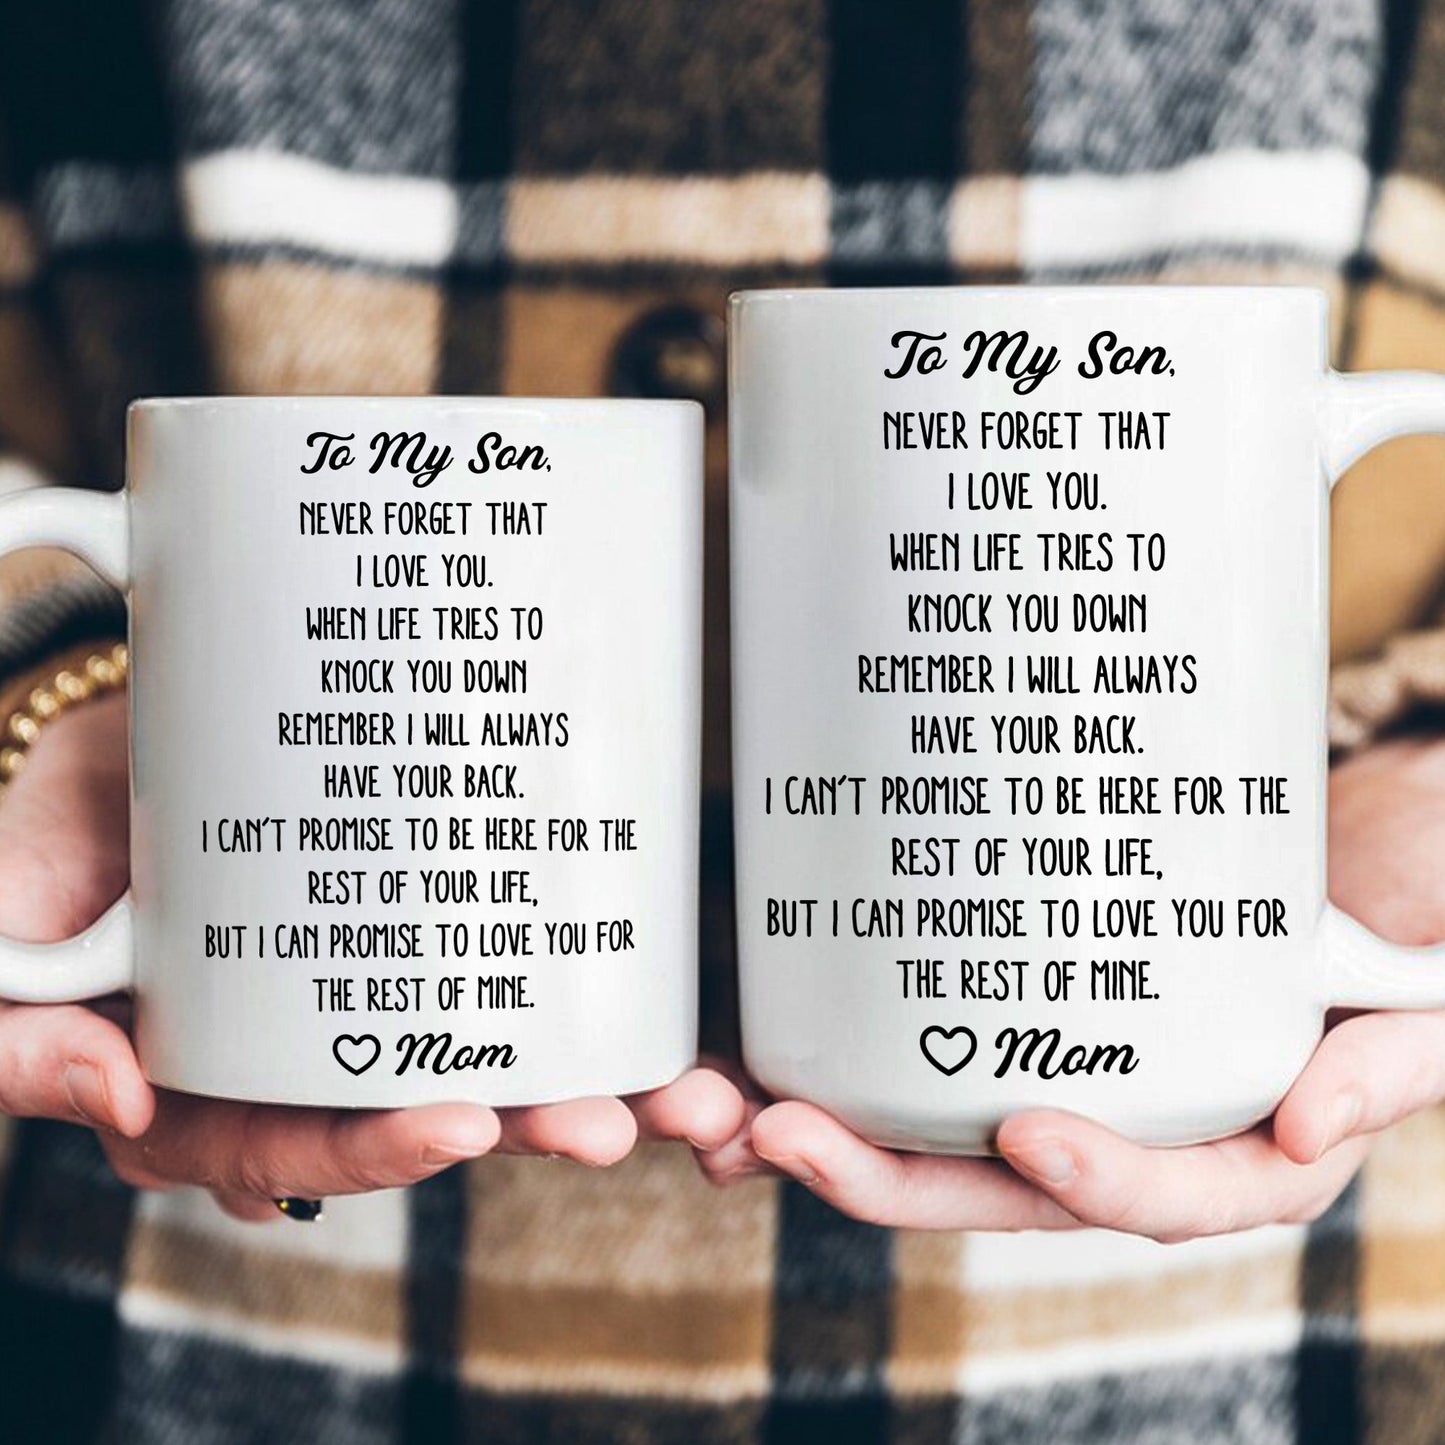 To My Son,
NEVER FORGET THAT
I LOVE YOU.
WHEN LIFE TRIES TO
KNOCK YOU DOWN
REMEMBER I WILL ALWAYS
HAVE YOUR BACK.
I CAN'T PROMISE TO BE HERE FOR THE
REST OF YOUR LIFE,
BUT I CAN PROMISE TO LOVE YOU FOR
THE REST OF MINE.
♡ Mom
To My Son,
NEVER FORGET THAT
I LOVE YOU.
WHEN LIFE TRIES TO
KNOCK YOU DOWN
REMEMBER I WILL ALWAYS
HAVE YOUR BACK.
I CAN'T PROMISE TO BE HERE FOR THE
REST OF YOUR LIFE,
BUT I CAN PROMISE TO LOVE YOU FOR
THE REST OF MINE.
♡ Mom